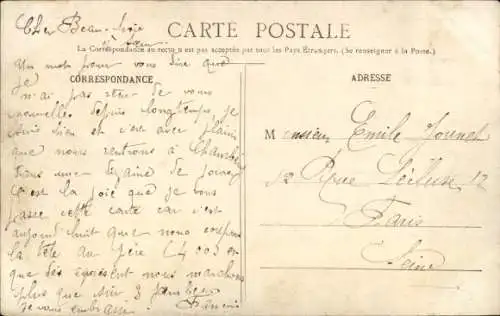 Cher Beau-
CARTE POSTALE
La Correspondance au recto n'est pas acceptée par tous les Pays Étrangers. (Se renseigner à la Poste.)
CORRESPONDANCE
Un mot pour vous dire que
je
n'ai pas de vous
nouvelles depuis longtemps je
suis bien et c'est avec plaisir
que nous rentrons à
dans une dizaine de jours
c'est la joie que je vous
passe cette carte car c'est
aujourd'huit que nous coupons
la tête au Père
que dès à présent nous marchons
plus que sur 3 jambes
je vous embrasse Francis
ADRESSE
Monsieur Emile
12 Rue 12
Paris
Seine